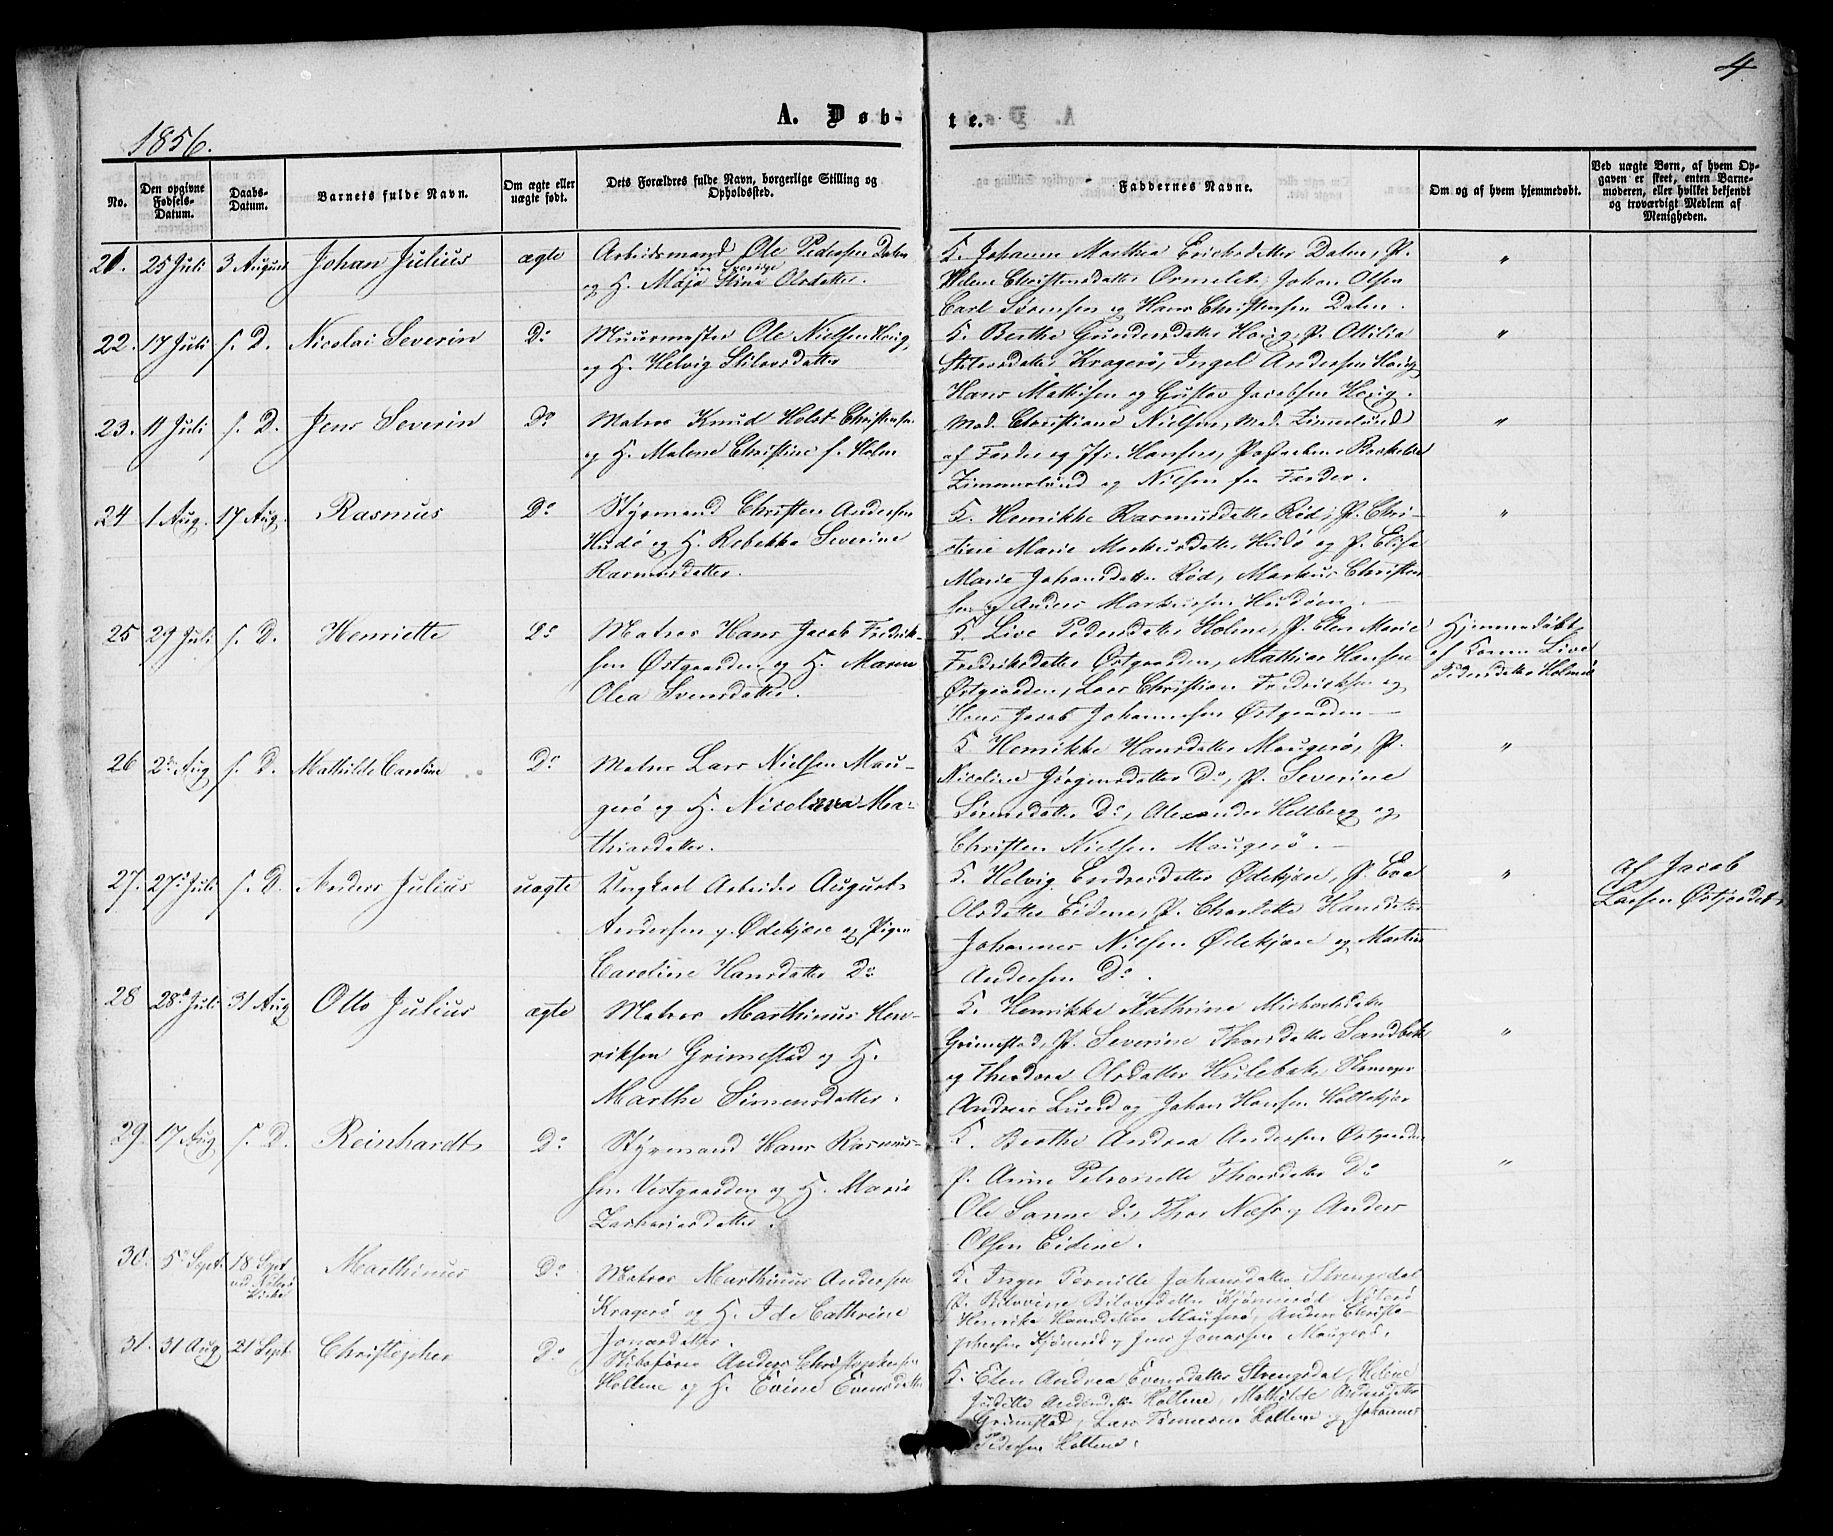 4
A. Døb- te.
1856.
No.
Den opgivne Fødsels-Datum.
Daabs-Datum.
Barnets fulde Navn.
Om ægte eller uægte født.
Dets Forældres fulde Navn, borgerlige Stilling og Opholdssted.
Faddernes Navne.
Om og af hvem hjemmedøbt.
Ved uægte Børn, af hvem Opgaven er skeet, enten Barnemoderen, eller hvilket bekjendt og troværdigt Medlem af Menigheden.
21. 25 Juli 3 August Johan Julius ægte
Arbeidsmand Ole Pedersen Dalen
fra Sverige
og H. Maja Stina Olsdatter.
K. Johanne Marthea Erichsdatter Dalen, P.
Helene Christensdatter Ormelet, Johan Olsen
Carl Sørensen og Hans Christensen Dalen. "
22. 17 Juli s. D. Nicolai Severin Do
Muurmester Ole Nielsen Houg,
og H. Helvig Stilovsdatter
K. Berthe Gundersdatter Houg, P. Ottilia
Stilovsdatter Kragerø, Ingel Andersen Houg,
Hans Mathisen og Gustav Jacobsen Houg. "
23. 11 Juli s. D. Jens Severin Do
Matros Knud Holst Christensen
og H. Malene Christine f. Holm
Mad. Christiane Nielsen, Mad. Zimerlund
af Færder og Jfr. Hansen,
Zimmerlund og Nielsen fra Færder. "
24 1 Aug. 17 Aug. Rasmus Do
Styrmand Christen Andersen
Hudø og H. Rebekka Severine
Rasmusdatter.
K. Henrikke Rasmusdatter Rød, P. Chri-
stine Marie Markusdatter Hudø og P. Elise
Marie Johansdatter Rød, Markus Christen
sen og Anders Markussen Hudøen. "
25 29 Juli s. D. Henriette Do
Matros Hans Jacob Fredrik-
sen Østgaarden og H. Maren
Olea Svensdatter.
K. Live Pedersdatter Holme, P. Elen Marie
Fredriksdatter Østgaarden, Mathias Hansen
Østgaarden, Lars Christian Fredriksen og
Hans Jacob Johannesen Østgaarden
Hjemmedøbt
af Konen Live
Pedersdatter Holme
26 2den Aug s. D. Mathilde Caroline Do
Matros Lars Nielsen Mau-
gerø og H. Nicolina Ma-
thiasdatter.
K. Henrikke Hansdatter Maugerø, P.
Nicoline Jørgensdatter Do, P. Severine
Sørensdatter Do, Alexander Hellberg og
Christen Nielsen Maugerø. "
27. 27de Juli s. D. Anders Julius uægte
Ungkarl Arbeider August
Andersen p. Ødekjære og Pigen
Caroline Hansdatter Do
K. Helvig Endresdatter Ødekjære, P. Eva
Olsdatter Eidene, P. Charlotte Hansdatter
Johannes Nilsen Ødekjære og Martin
Andersen Do. "
Af Jacob
Larsen Østjordet
28 28de Juli 31 Aug Otto Julius ægte
Matros Marthinus Hen-
riksen Grimestad og H.
Marthe Simensdatter.
K. Henrikke Kathrine Michaelsdatter
Grimestad, P. Severine Thorsdatter Sandbek
og Theodora Olsdatter Hulebak,
Andreas Lund og Johan Hansen Holtekjær "
29. 17 Aug s. D. Reinhardt Do
Styrmand Hans Rasmus-
sen Vestgaarden og H. Marie
Zachariasdatter.
K. Berthe Andrea Andersen Østgaarden
P. Anne Petronelle Thorsdatter Do
Ole Sanne Do, Thor Næss og Anders
Olsen Eidene. "
30. 5te Sept. 18 Sept
ved Nøterø
Kirke
Marthinus Do
Matros Marthinus Andersen
Kragerø og H. Ide Cathrine
Jonasdatter.
K. Inger Pernille Johansdatter Strengsdal
Kjønnerød Nøterø
Henrikke Hansdatter Maugerø, Anders Christo-
phersen Kjønnerød og Jens Jonassen Maugerø.
31. 31 Aug 21 Sept. Christopher Do
Skibsfører Anders Christophersen
Holtene og H. Evine Evensdatter
K. Elen Andrea Evensdatter Strengsdal, Helene
Judithe Andersdatter Holtene, Mathilde Andersdatter
Grimestad, Lars Tønnesen Holtene og Johannes
Pedersen Holtene.